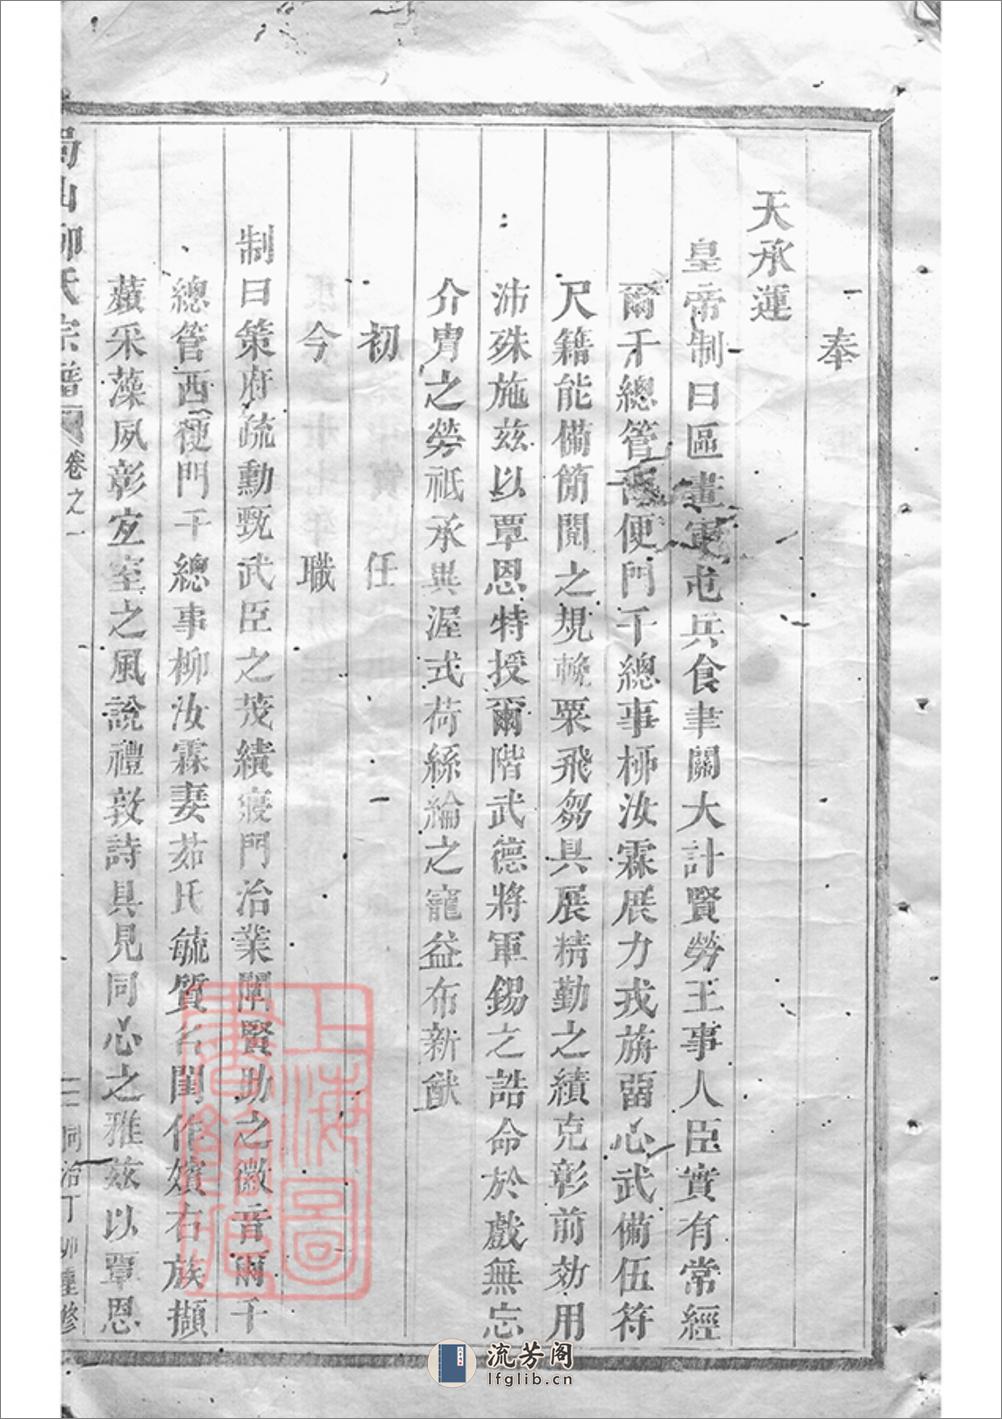 奉
天承運
皇帝制曰區畫軍屯兵食聿關大計賢勞王事人臣實有常經
爾千總管 便門千總事柳汝霖展力戎旃留心武備伍符
尺籍能備簡閱之規輓粟飛芻具展精勤之績克彰前効用
沛殊施茲以覃恩特授爾階武德將軍錫之誥命於戲無忘
介冑之勞祗承異渥式荷絲綸之寵益布新猷
初任
今職
制曰策府疏勳甄武臣之茂績寢門治業闡賢助之徽音爾千
總管西便門千總事柳汝霖妻茹氏毓質名閨作嬪右族擷
蘋采藻夙彰宜室之風說禮敦詩具見同心之雅茲以覃恩
柳氏宗譜 卷之一
二 同治丁卯重修
上海圖書館藏
流芳阁
lfglib.cn